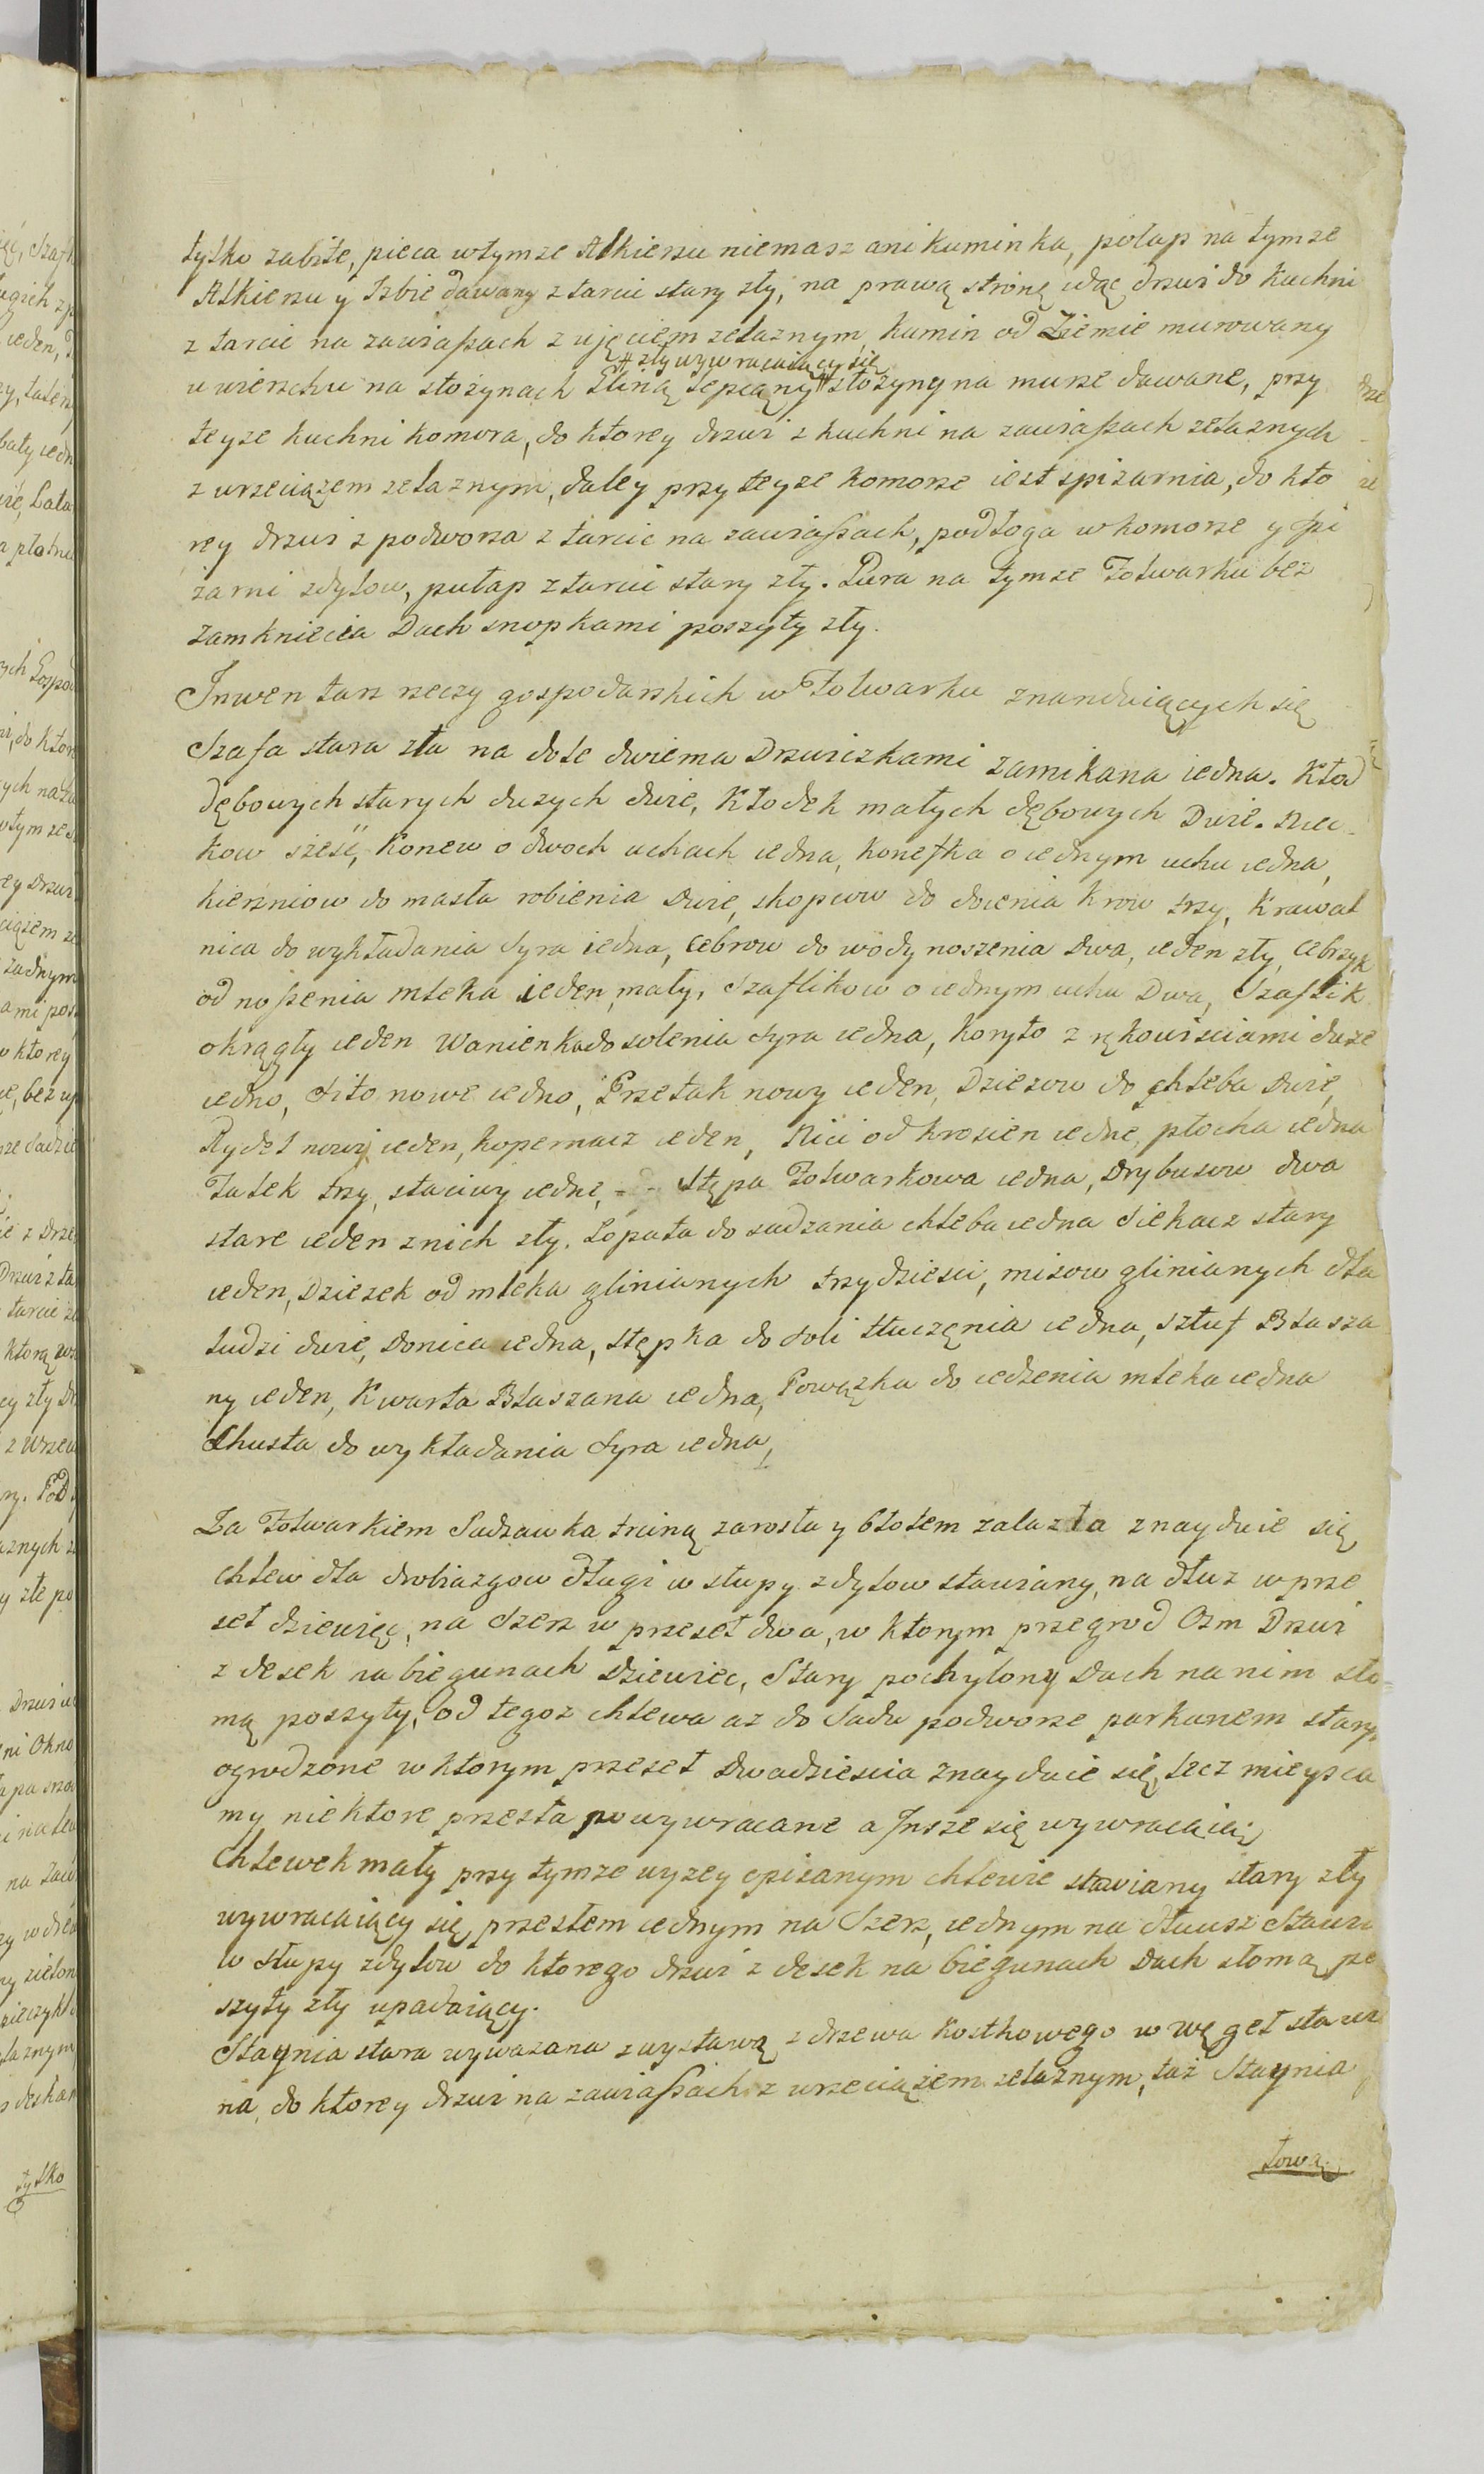 tylko zabite, pieca wtymze Alkierzu niemasz ani kaminka, połap na tymze
Alkierzu y Izbie dawany z tarcic stary zły, na prawą stronę idąc drzwi do kuchni
z tarcic na zawiaßach z ujęciem zelaznym, kamin od Ziemie murowany
# zły wywracaiący się
u wierzchu na słożynach Gliną lepiąny # słożyny na murze dawane, przy
teyze kuchni komora, do ktorey drzwi z kuchni na zawiaßach zelaznych
z wrzeciązem zelaznym, daley przy teyze komorze iest spizarnia, do kto
rey drzwi z podworza z tarcic na zawiaßach, podłoga w komorze y spi
zarni zdylow, pułap z tarcic stary zły. Gura na tymze Folwarku bez
zamkniecia Dach snopkami poszyty zły.
Inwentarz rzeczy gospodarskich w Folwarku znanduiących się
Szafa stara zła na dole dwiema Drzwiczkami zamikana iedna. Kłod
dębowych starych duzych dwie, Kłodek małych dębowych Dwie. Niec
kow sześć, Konew o dwoch uchach iedna, konefka o iednym uchu iedna,
kierzniow do masła robienia dwie, skopcow do doienia krow trzy, Krawal
nica do wykładania Syra iedna, Cebrow do wody noszenia dwa, ieden zły, Cebrzyk
od noßenia mleka ieden mały, Szaflikow o iednym uchu Dwa, Szaflik
okrągły ieden Wanienka do solenia Syra iedna, Koryto z rękowisciami duze
iedno, Sito nowe iedno, Przetak nowy ieden, Dziezow do chleba dwie,
Rydel nowy ieden, kopernacz ieden, Nici od krosien iedne, płocha iedna
Falek trzy, staciwy iedne, - - Stępa Folwarkowa iedna, Drybusow dwa
stare ieden znich zły. Łopata do sadzania chleba iedna Siekacz stary
ieden, Dziezek od mleka glinianych trzydziesci, misow glinianych dla
ludzi dwie, Donica iedna, stępka do soli tłuczęnia iedna, sztuf Blasza
ny ieden, Kwarta Blaszana iedna, Powązka do cedzenia mleka iedna
Chusta do wykładania Syra iedna,
Za Folwarkiem Sadzawka trciną zarosła y błotem zalazła znayduie się
chlew dla drobiazgow długi w słupy zdylow stawiany, na dłuz w prze
seł dziewięc, na Szerz w przeseł dwa, w ktorym przegrod Osm Drzwi
z desek na biegunach Dziewiec, Stary pochylony Dach na nim sło
mą poszyty, od tegoz chlewa az do Sadu podworze parkanem starym
ogrodzone w ktorym przeseł dwadziescia znayduie się, lecz mieysca
my niektore przesła powywracane a Insze się wywracaią
Chlewek mały przy tymze wyzey opisanym chlewie stawiany stary zły
wywracaiący się, przesłem iednym na Szerz, iednym na dłuusz Stawia
w słupy zdylow do ktorego drzwi z desek na biegunach Dach słomą po
szyty zły upadaiący.
Staynia stara wywazana z wystawą z drzewa kostkowego w węgeł stawia
na, do ktorey drzwi na zawiaßach z wrzeciązem zelaznym, taż Staynia